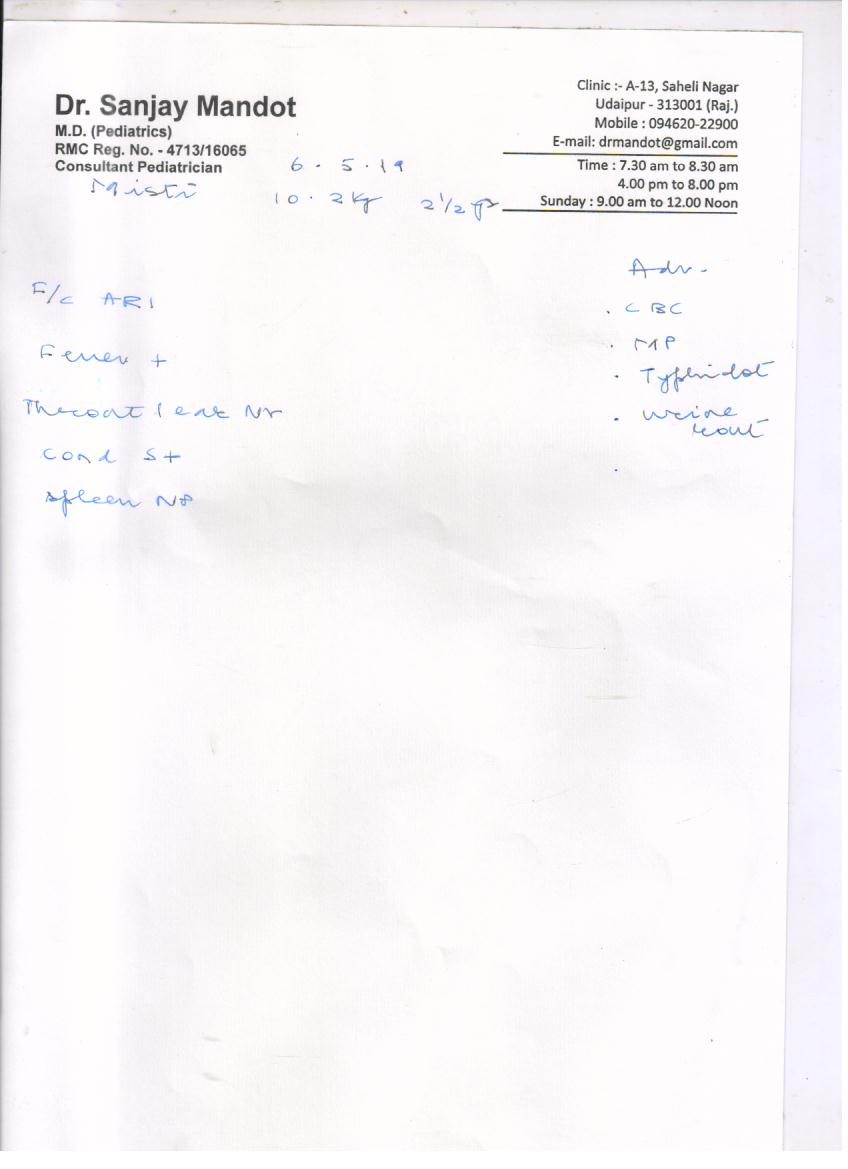 Dr. Sanjay Mandot
M.D. (Pediatrics)
RMC Reg. No. - 4713/16065
Consultant Pediatrician
Clinic :- A-13, Saheli Nagar
Udaipur - 313001 (Raj.)
Mobile : 094620-22900
E-mail: drmandot@gmail.com
Time : 7.30 am to 8.30 am
4.00 pm to 8.00 pm
Sunday : 9.00 am to 12.00 Noon
6 . 5 . 19
Misti
10 . 2 kg 2 1/2 yr
F/C ARI
Fever +
Throat / ear Nr
Cond S+
Spleen NP
Adv.
. CBC
. MP
. Typhidot
. Urine
rout